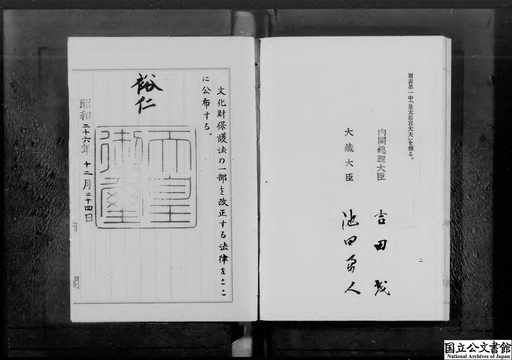 別表第一中「皇太后宮大夫」を削る。
内閣総理大臣 吉田茂
大蔵大臣 池田勇人
二
文化財保護法の一部を改正する法律をここ
に公布する。
裕仁
天皇
御璽
昭和二十六年十二月二十四日
国立公文書館
National Archives of Japan